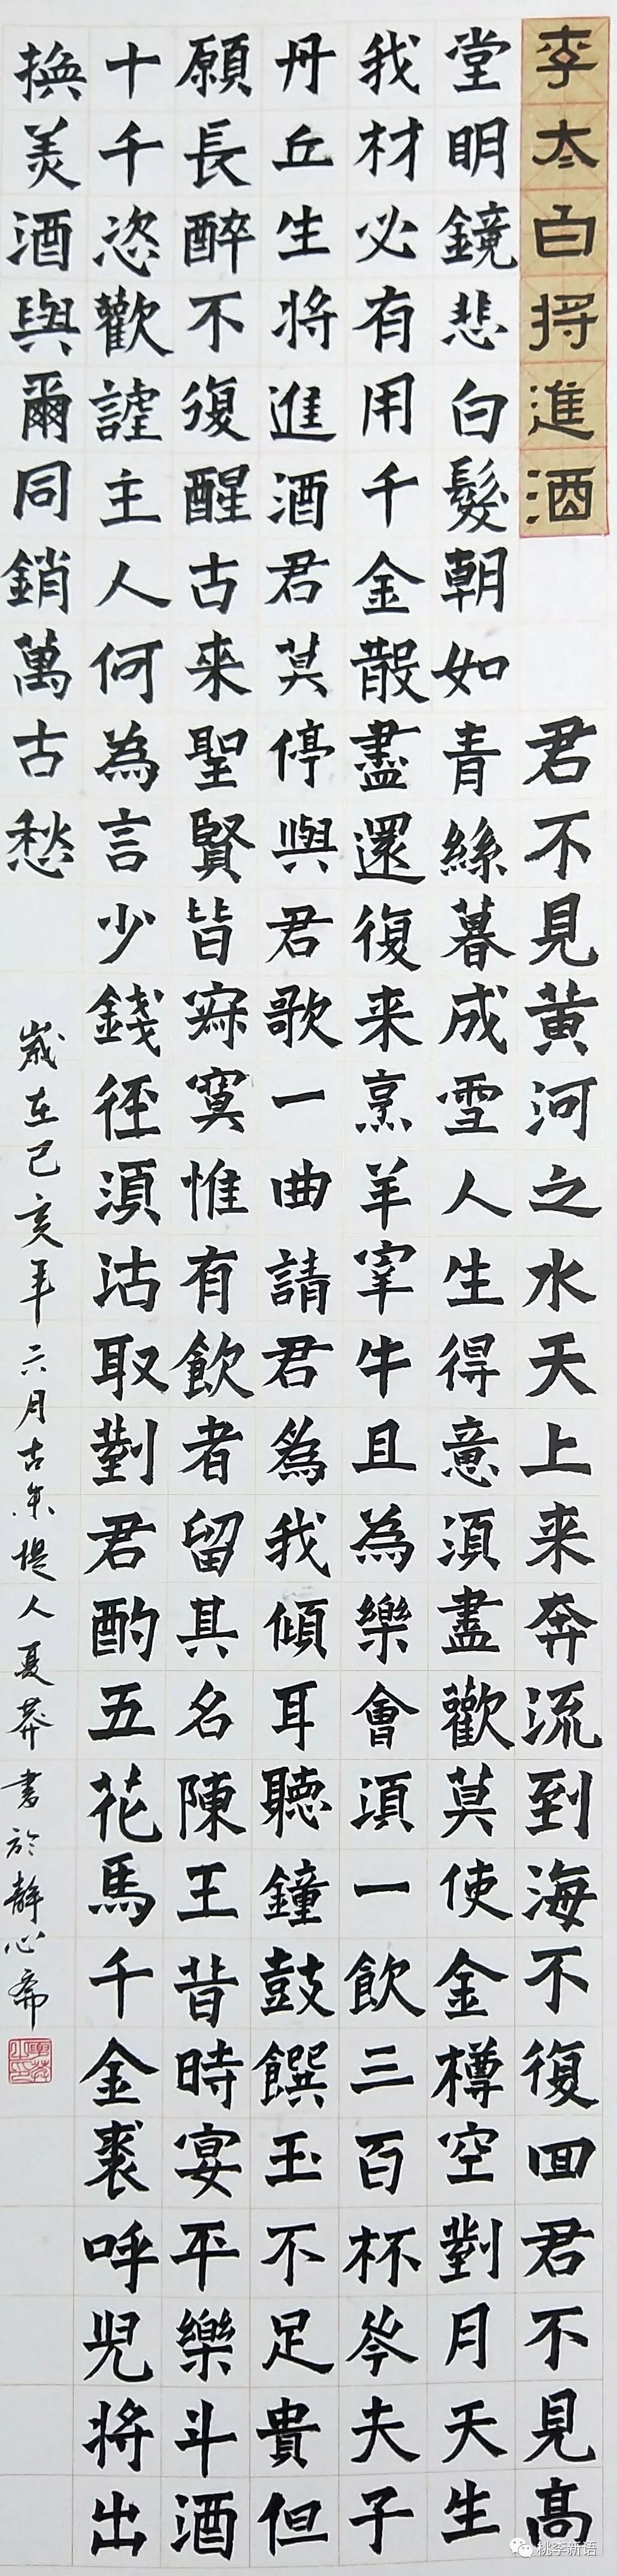 李太白将進酒
君不見黃河之水天上来奔流到海不復回君不見高
堂明鏡悲白髮朝如青絲暮成雪人生得意須盡歡莫使金樽空對月天生
我材必有用千金散盡還復来烹羊宰牛且為樂會須一飲三百杯岑夫子
丹丘生将進酒君莫停與君歌一曲請君為我傾耳聽鐘鼓饌玉不足貴但
願長醉不復醒古来聖賢皆寂寞惟有飲者留其名陳王昔時宴平樂斗酒
十千恣歡謔主人何為言少錢徑須沽取對君酌五花馬千金裘呼兒将出
換美酒與爾同銷萬古愁
歲在己亥年六月古朱堤人夏莽書於靜心齋
桃李新语